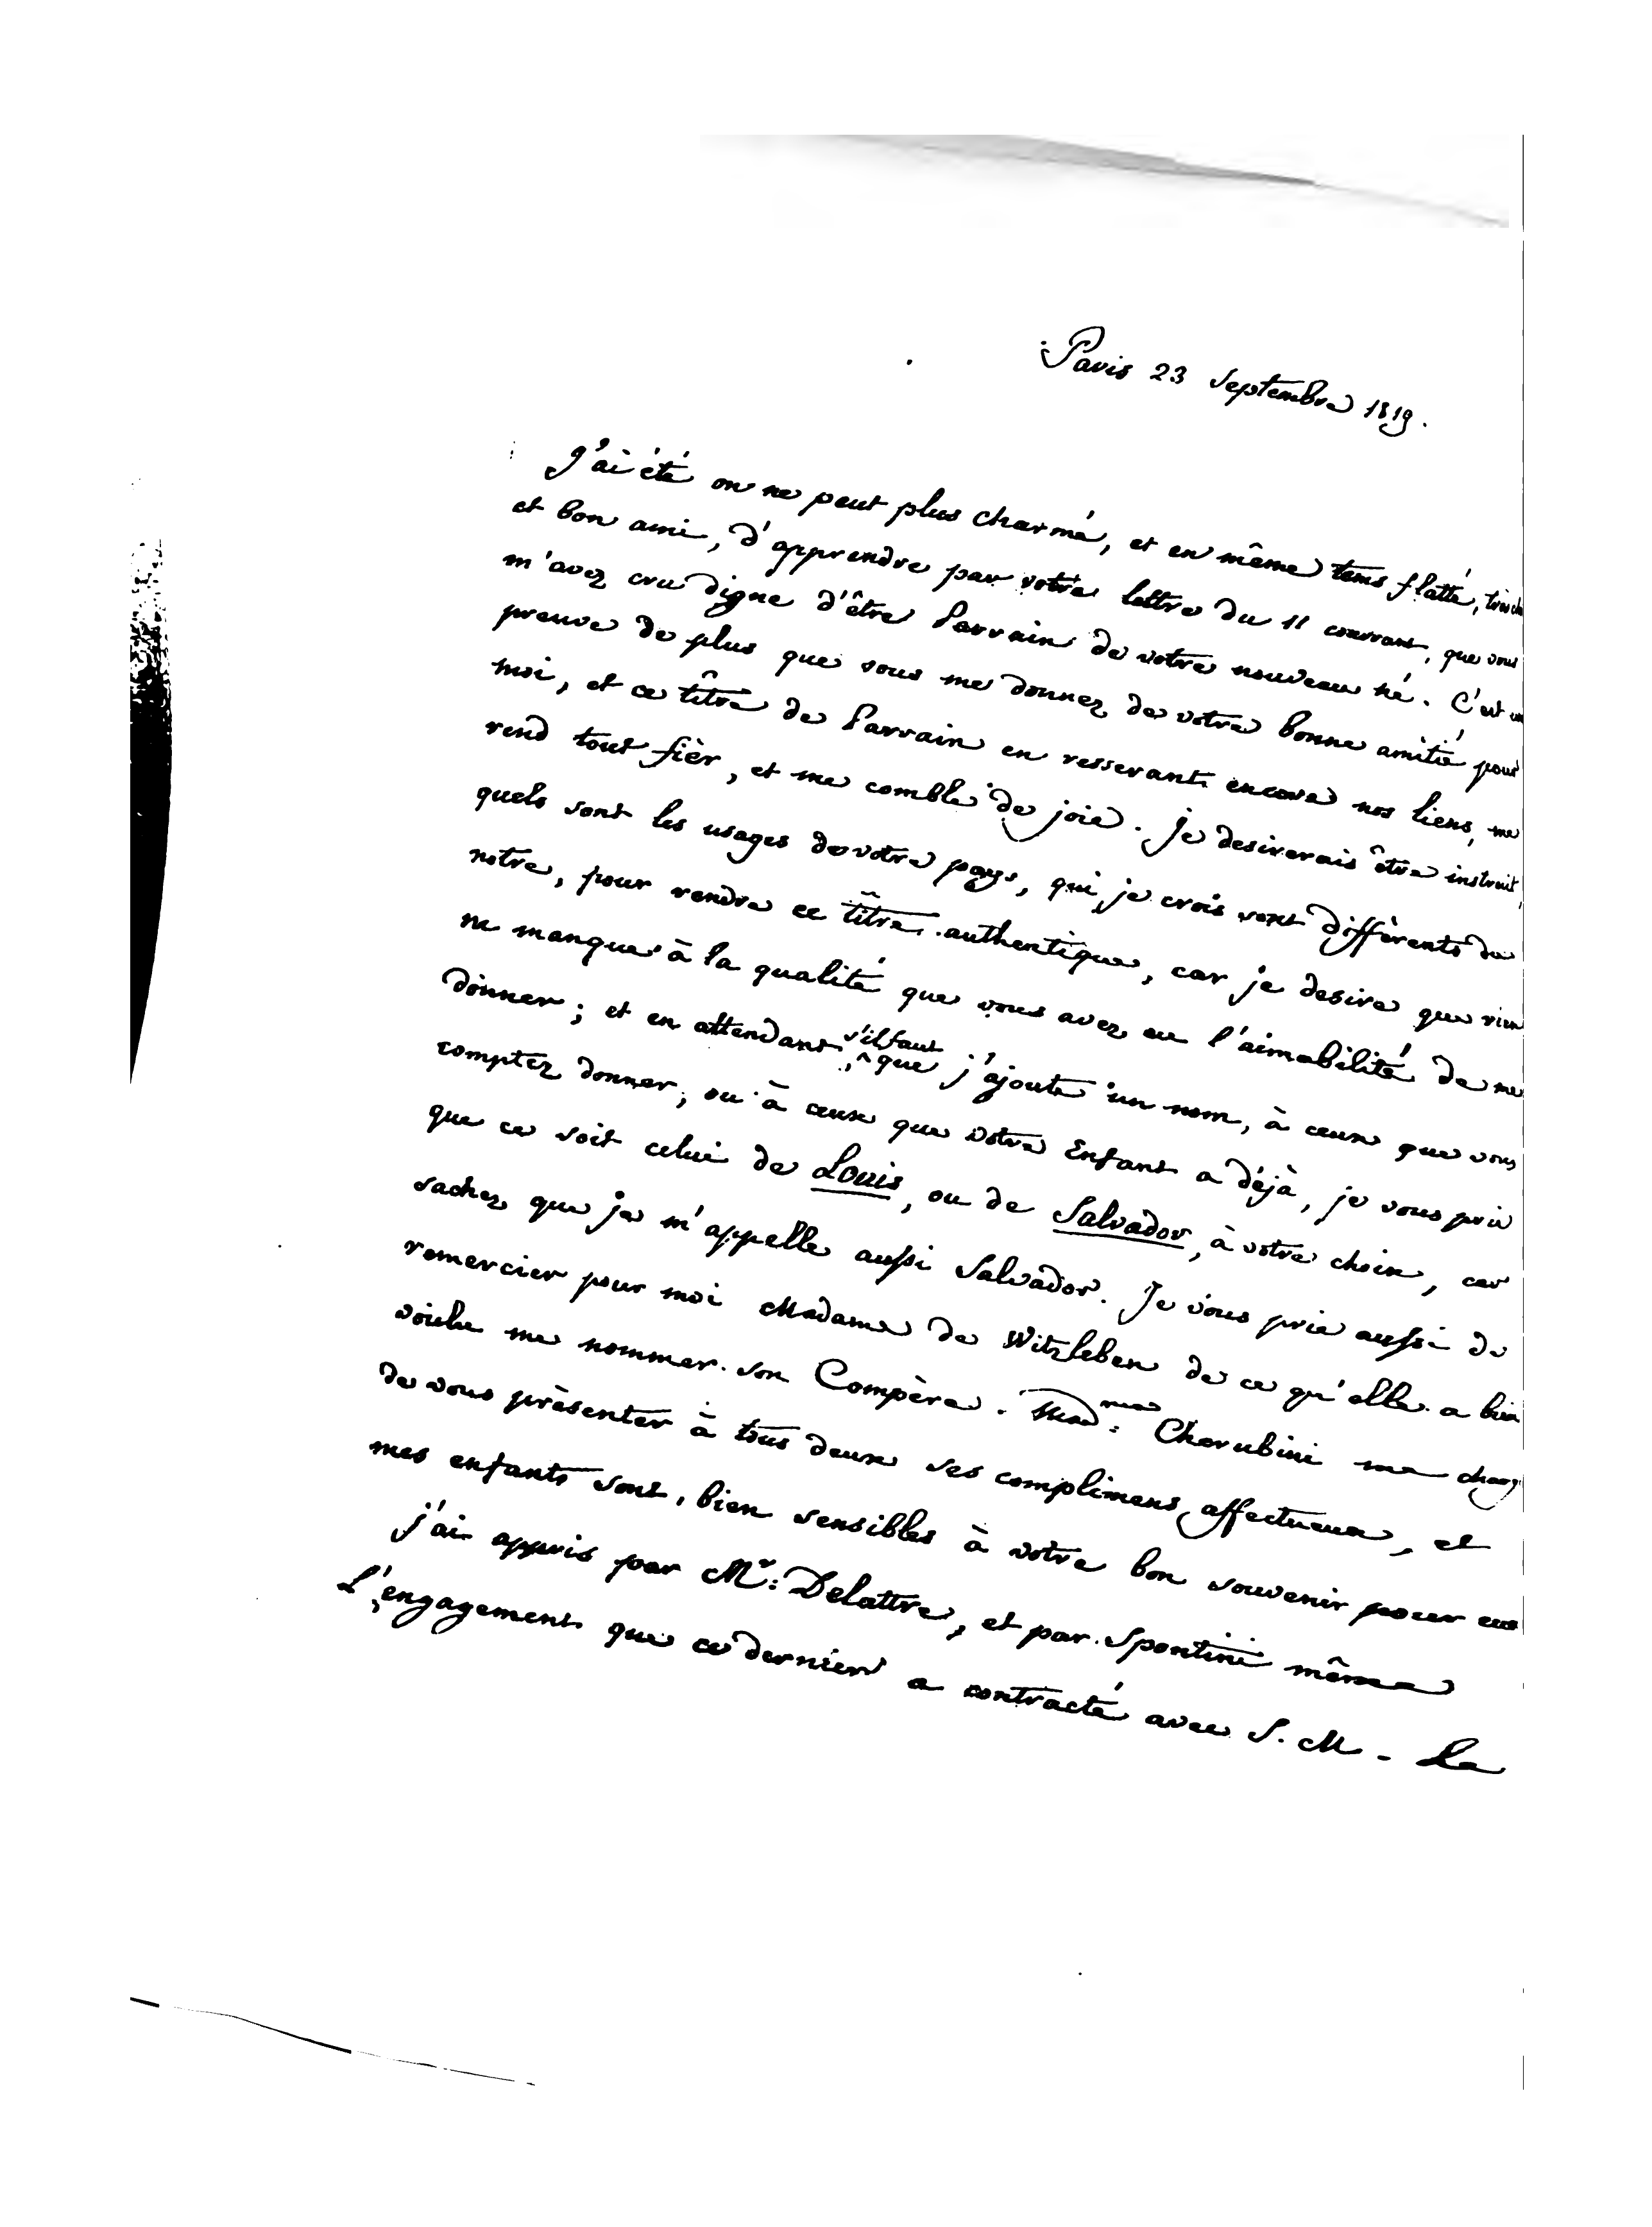 Paris 23 Septembre 1819.
J'ai été on ne peut plus charmé, et en même tems flatté, très che
et bon ami, d'apprendre par votre lettre du 11 courrant, que vous
m'avez cru digne d'être Parrain de votre nouveau né. C'est un
preuve de plus que vous me donnez de votre bonne amitié pour
moi, et ce tître de Parrain en resserant encore nos liens, me
rend tout fièr, et me comble de joie. Je desirerais être instruit,
quels sont les usages de votre pays, qui je crois sont diffèrents du
notre, pour rendre ce tître authentique, car je desire que rien
ne manque à la qualité que vous avez eu l'aimabilité de me
donner; et en attendant, s'il faut que j'ajoute un nom, à ceux que vous
comptez donner, ou à ceux que votre Enfant a déjà, je vous prie
que ce soit celui de Louis, ou de Salvador, à votre choix, car
sachez que je m'appelle aussi Salvador. Je vous prie aussi de
remercier pour moi Madame de Witzleben de ce qu'elle a bien
voulu me nommer son Compère. Mad:me Cherubini me charg
de vous prèsenter à tous deux ses complimens affectueux, et
mes enfants sont bien sensibles à votre bon souvenir pour eux
j'ai appris par Mr: Delattre, et par Spontini même
l'engagement que ce dernier a contracté avec S. M. Le